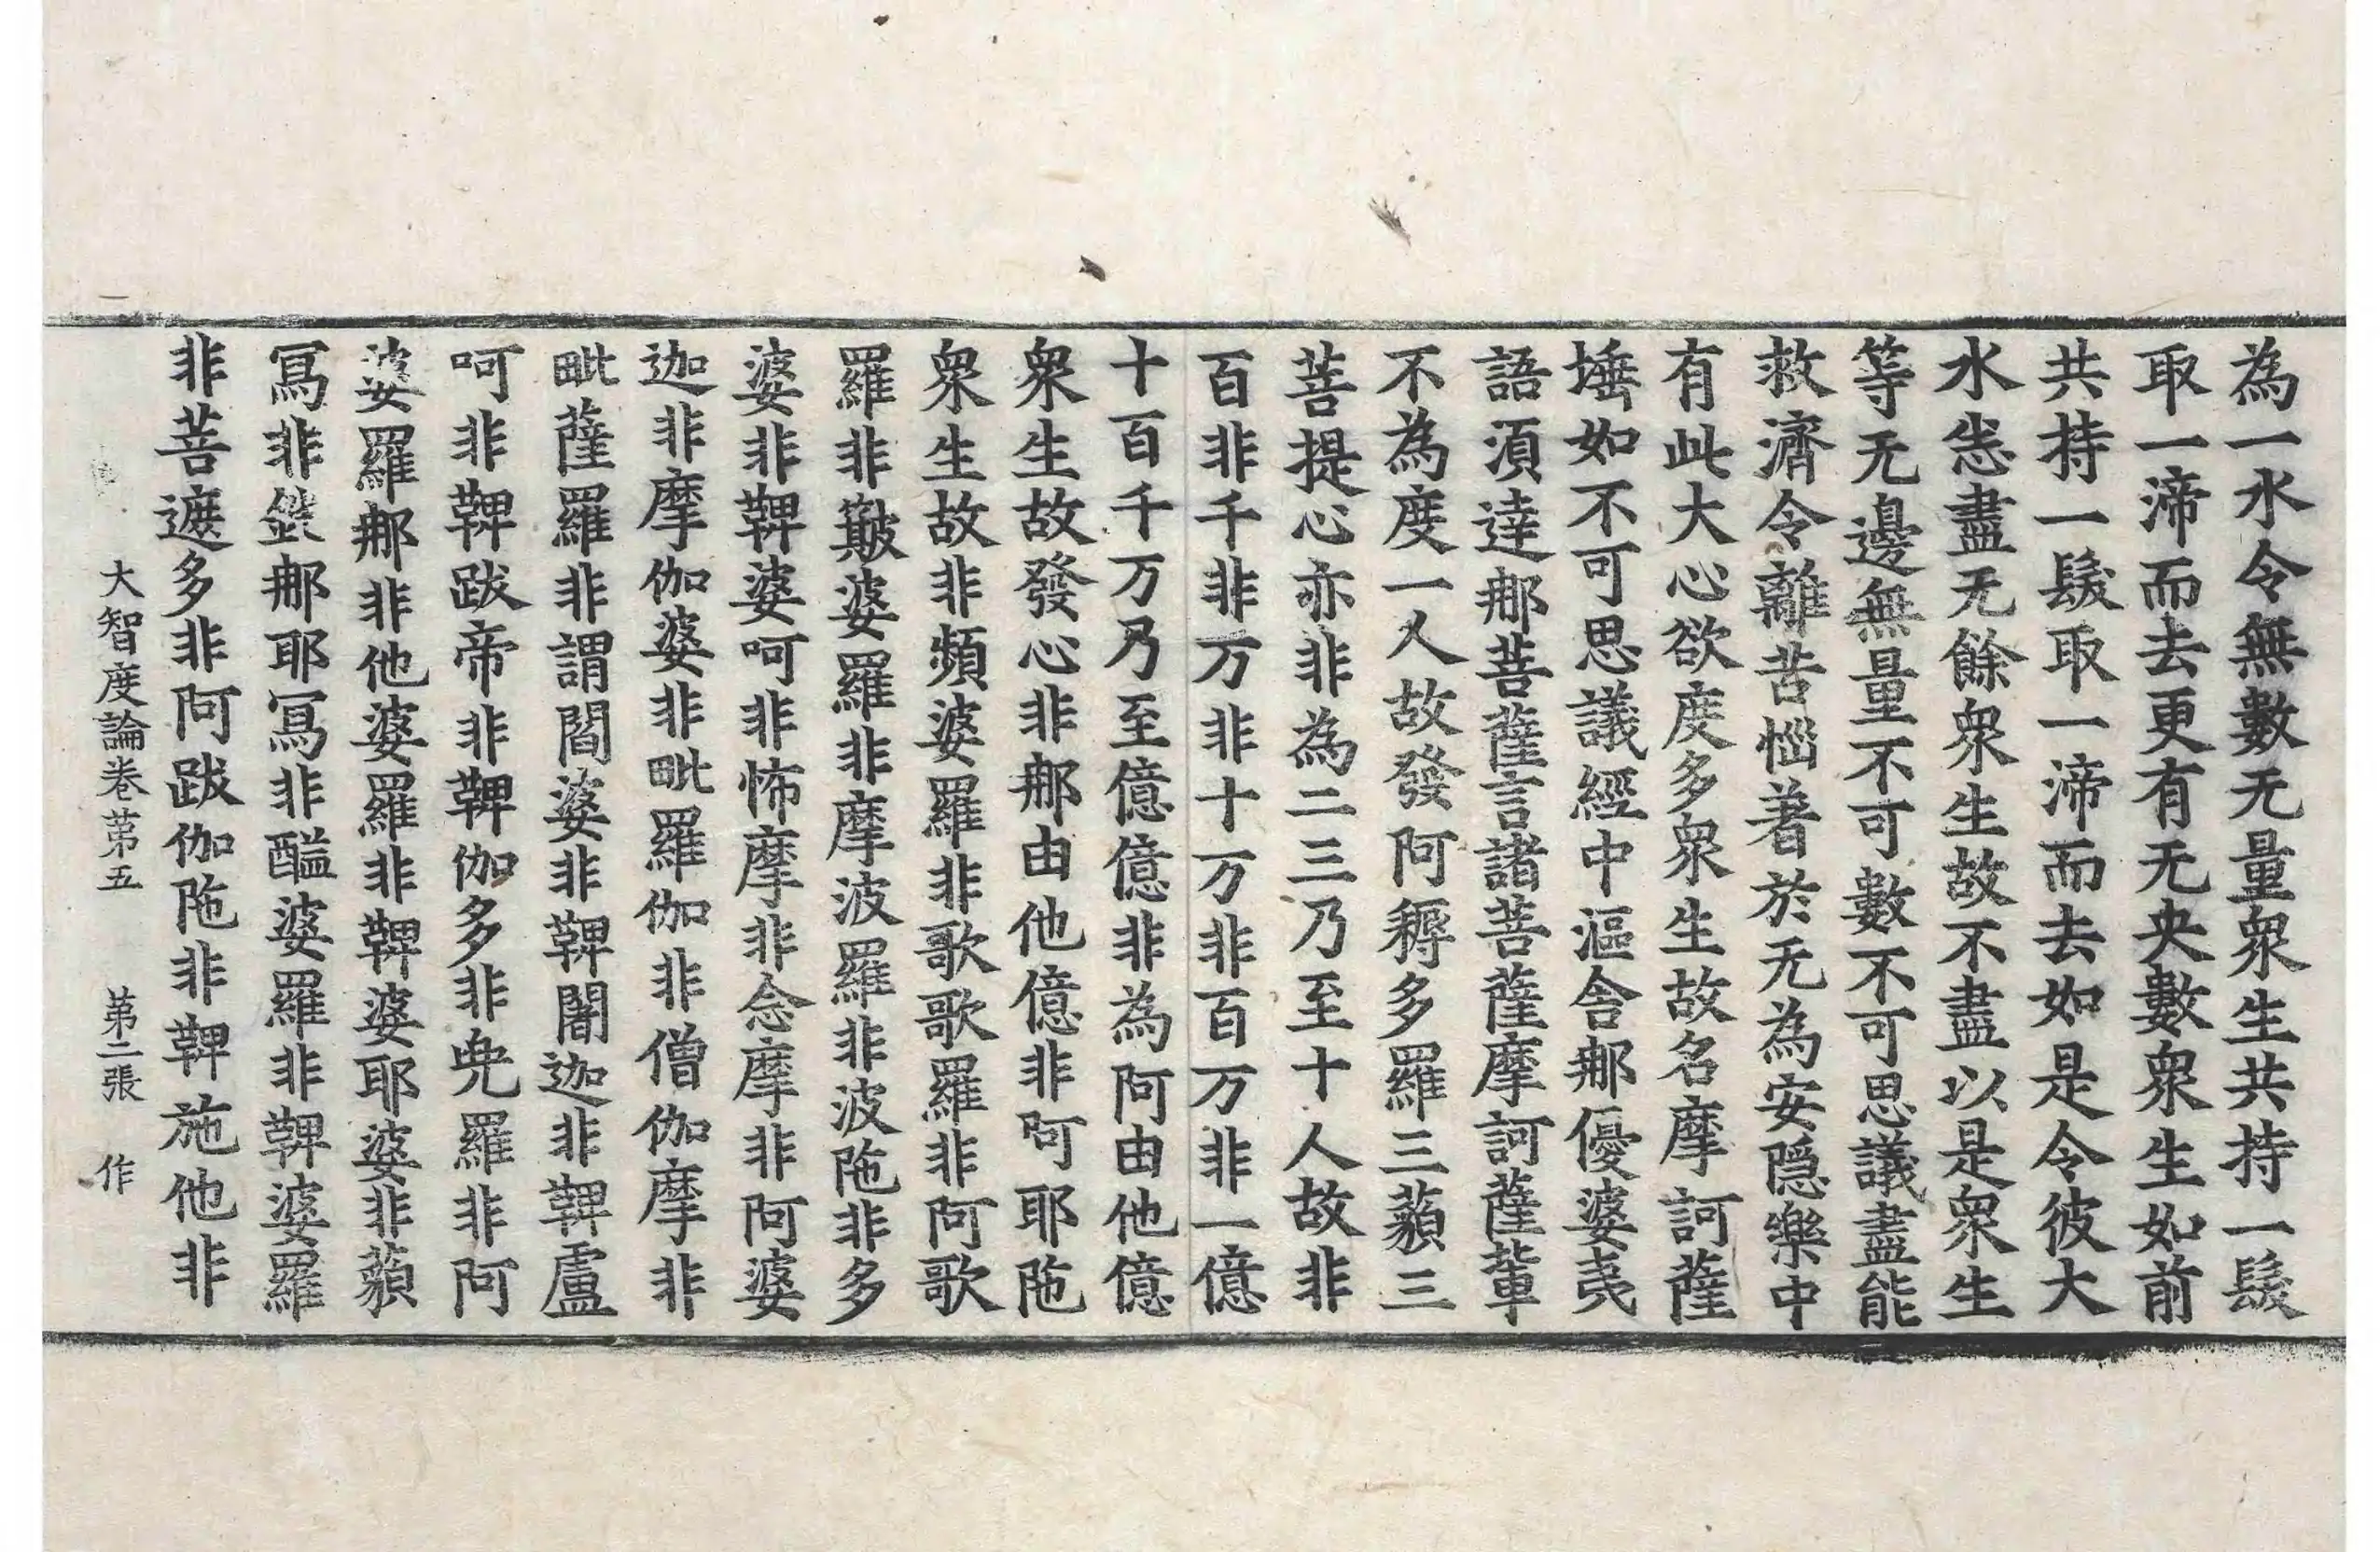 為一水令無數无量衆生共持一髮
取一渧而去更有无央數衆生如前
共持一髮取一渧而去如是令彼大
水悉盡无餘衆生故不盡以是衆生
等无邊無量不可數不可思議盡能
救濟令離苦惱著於无為安隱樂中
有此大心欲度多衆生故名摩訶薩
埵如不可思議經中漚舍那優婆夷
語湏達那菩薩言諸菩薩摩訶薩輩
不為度一人故發阿耨多羅三藐三
菩提心亦非為二三乃至十人故非
百非千非万非十万非百万非一億
十百千万乃至億億非為阿由他億
衆生故發心非那由他億非阿耶陁
衆生故非頻婆羅非歌歌羅非阿歌
羅非簸婆羅非摩波羅非波陁非多
婆非鞞婆呵非怖摩非念摩非阿婆
迦非摩伽婆非毗羅伽非僧伽摩非
毗薩羅非謂閻婆非鞞闍迦非鞞盧
呵非鞞跋帝非鞞伽多非兜羅非阿
婆羅那非他婆羅非鞞婆耶婆非藐
寫非鈋那耶寫非醯婆羅非鞞婆羅
非菩遮多非阿跋伽陁非鞞施他非
大智度論卷苐五 苐二張 作